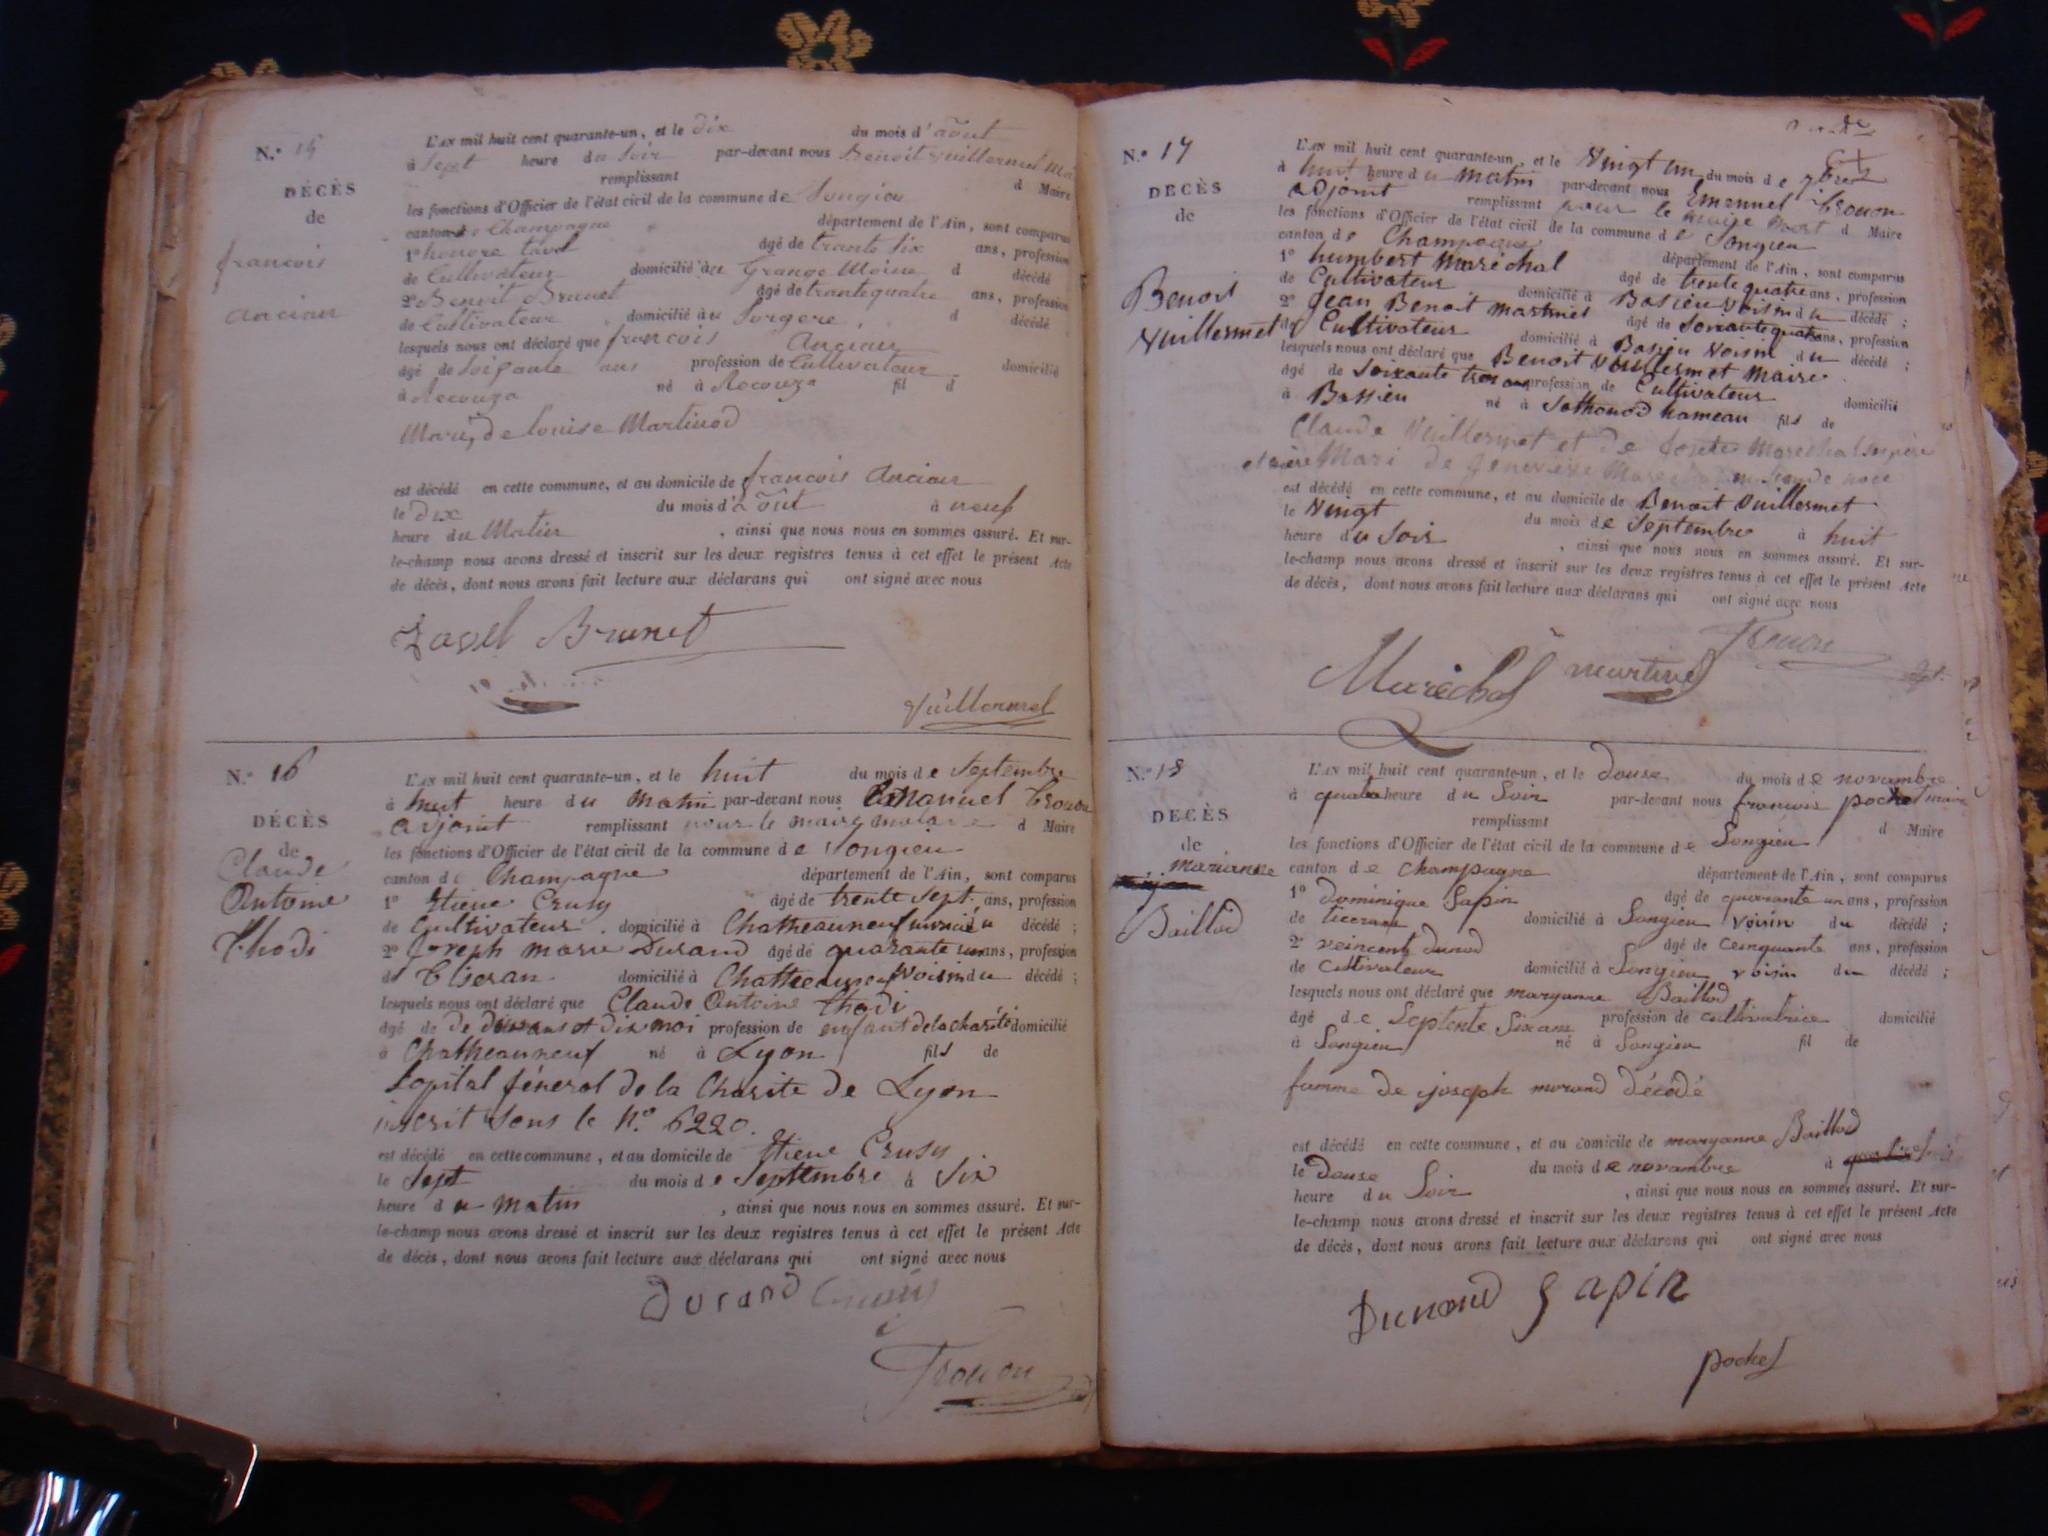 N.° 15
DÉCÈS
de
francois
ancian
L'AN mil huit cent quarante-un, et le dix du mois d'août
à sept heure du soir par-devant nous Benoit vuillermet
remplissant d Maire
les fonctions d'Officier de l'état civil de la commune de Songieu
canton de Champagne département de l'Ain, sont comparus
1° honore tavel âgé de trante six ans, profession
de Cultivateur domicilié à la Grange Moine d décédé
2° Benoit Brunet âgé de trante quatre ans, profession
de Cultivateur, domicilié à Sorgere, d décédé
lesquels nous ont déclaré que francois Ancian
âgé de soisante ans profession de Cultivateur domicilié
à né à fil d
Mari de louise Martinod
est décédé en cette commune, et au domicile de francois Ancian
le dix du mois d'août à neuf
heure du Matin, ainsi que nous nous en sommes assuré. Et sur-
le-champ nous avons dressé et inscrit sur les deux registres tenus à cet effet le présent Acte
de décès, dont nous avons fait lecture aux déclarans qui ont signé avec nous
Tavel Brunet
Vuillermet
N.° 16
DÉCÈS
de
Claude
Antoine
Thodi
L'AN mil huit cent quarante-un, et le huit du mois de septembre
à huit heure du matin par-devant nous Emanuel Trouon
adjoint remplissant pour le maire malade d Maire
les fonctions d'Officier de l'état civil de la commune de Songieu
canton de Champagne département de l'Ain, sont comparus
1° Etiene Crusy âgé de trente sept ans, profession
de Cultivateur. domicilié à Chatheauneuf voisin du décédé;
2° Joseph marie Durand âgé de quarante un ans, profession
de Tiseran domicilié à Chatheauneuf Voisin du décédé;
lesquels nous ont déclaré que Claude Antoine Thodi
âgé de de deux ans et dix moi profession de enfant de la charité domicilié
à Chatheauneuf né à Lyon fils de
Lopital féneral de la Charite de Lyon
inscrit sous le N.° 6220.
est décédé en cette commune, et au domicile de Etiene Crusy
le sept du mois de Septtembre à Six
heure du matin, ainsi que nous nous en sommes assuré. Et sur-
le-champ nous avons dressé et inscrit sur les deux registres tenus à cet effet le présent Acte
de décès, dont nous avons fait lecture aux déclarans qui ont signé avec nous
Durand Crusy
Trouon
N.° 17
DÉCÈS
de
Benoit
Vuillermet
L'AN mil huit cent quarante-un, et le Vingt un du mois de 7bre
à huit heure du matin par-devant nous Emanuel Trouon
adjoint remplissant pour le maire mort d Maire
les fonctions d'Officier de l'état civil de la commune de Songieu
canton de Champagne département de l'Ain, sont comparus
1° humbert Maréchal âgé de trente quatre ans, profession
de Cultivateur domicilié à Bassieu Voisin du décédé;
2° Jean Benoit martinet âgé de Soixante quatre ans, profession
de Cultivateur domicilié à Bassieu Voisin du décédé;
lesquels nous ont déclaré que Benoit Vuillermet Maire
âgé de Soixante trois ans profession de Cultivateur domicilié
à Bassieu né à Sothonod hameau fils de
Claude Vuillermet et de Marechal
Mari de Genevieve
est décédé en cette commune, et au domicile de Benoit Vuillermet
le Vingt du mois de Septembre à huit
heure du Soir, ainsi que nous nous en sommes assuré. Et sur-
le-champ nous avons dressé et inscrit sur les deux registres tenus à cet effet le présent Acte
de décès, dont nous avons fait lecture aux déclarans qui ont signé avec nous
Maréchal martinet Trouon
N.° 18
DÉCÈS
de
marianne
Baillod
L'AN mil huit cent quarante-un, et le douse du mois de novambre
à quatre heure du Soir par-devant nous francois pochet maire
remplissant d Maire
les fonctions d'Officier de l'état civil de la commune de Songieu
canton de Champagne département de l'Ain, sont comparus
1° dominique Sapin âgé de quarante un ans, profession
de domicilié à Songieu voisin du décédé;
2° veincent dunod âgé de cenquante ans, profession
de cultivateur domicilié à Songieu voisin du décédé;
lesquels nous ont déclaré que maryanne Baillod
âgé de Septente Six ans profession de cultivatrice domicilié
à Songieu né à Songieu fil de
famme de joseph morand décédé
est décédé en cette commune, et au domicile de maryanne Baillod
le douse du mois de novambre à
heure du Soir, ainsi que nous nous en sommes assuré. Et sur-
le-champ nous avons dressé et inscrit sur les deux registres tenus à cet effet le présent Acte
de décès, dont nous avons fait lecture aux déclarans qui ont signé avec nous
Dunand Sapin
pochet